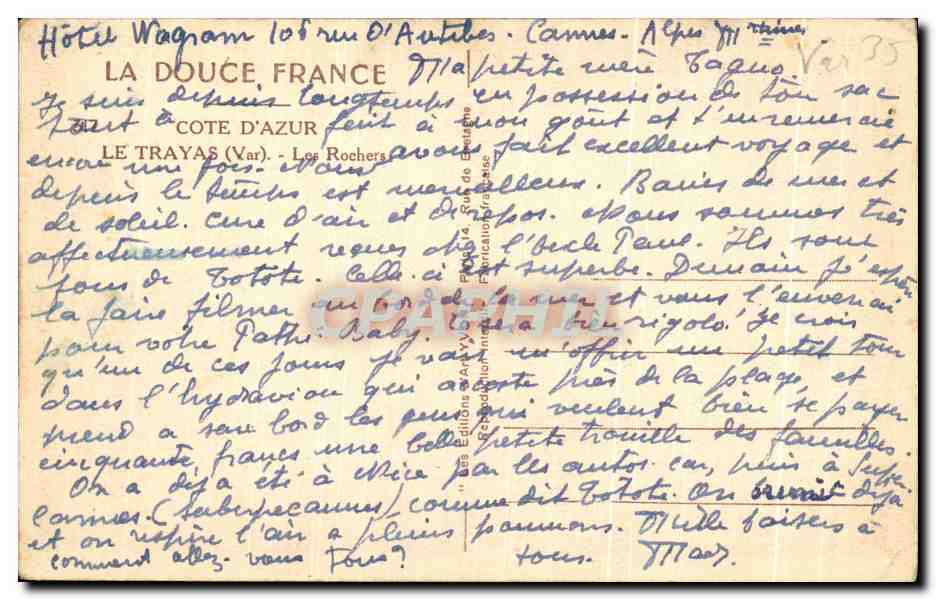 Hôtel Wagram 106 rue D'Antibes. Cannes. Alpes Mritimes
Var 35
LA DOUCE FRANCE
Ma petite mère
Je suis depuis longtemps en possession de ton sac
tout à fait à mon goût et t'en remercie
COTE D'AZUR
LE TRAYAS (Var). - Les Rochers
encore une fois. Nous avons fait excellent voyage et
depuis le temps est merveilleux. Bains de mer et
de soleil. Cure d'air et de repos. Nous sommes très
affectueusement reçus chez l'oncle Paul. Ils sont
fous de Totote. Celle ci est superbe. Demain j'espère
la faire filmer au bord de la mer et vous l'enverrai
pour votre Pathé. Baby. Ce sera bien rigolo. Je crois
qu'un de ces jours je vais m'offrir un petit tour
dans l'hydravion qui accoste près de la plage, et
prend à son bord les gens qui veulent bien se payer
cinquante francs une belle petite trouille des familles.
On a déjà été à Nice par les autos car, puis à
Cannes. (Saberpecannes) comme dit Totote. On brunit déjà
et on respire l'air à pleins poumons. Mille baisers à
comment allez vous tous?
tous. Mad.
Les Editions d'Art YVON, Paris, 14, Rue de Bretagne
Reproduction Interdite
Fabrication française
CPAPHIL